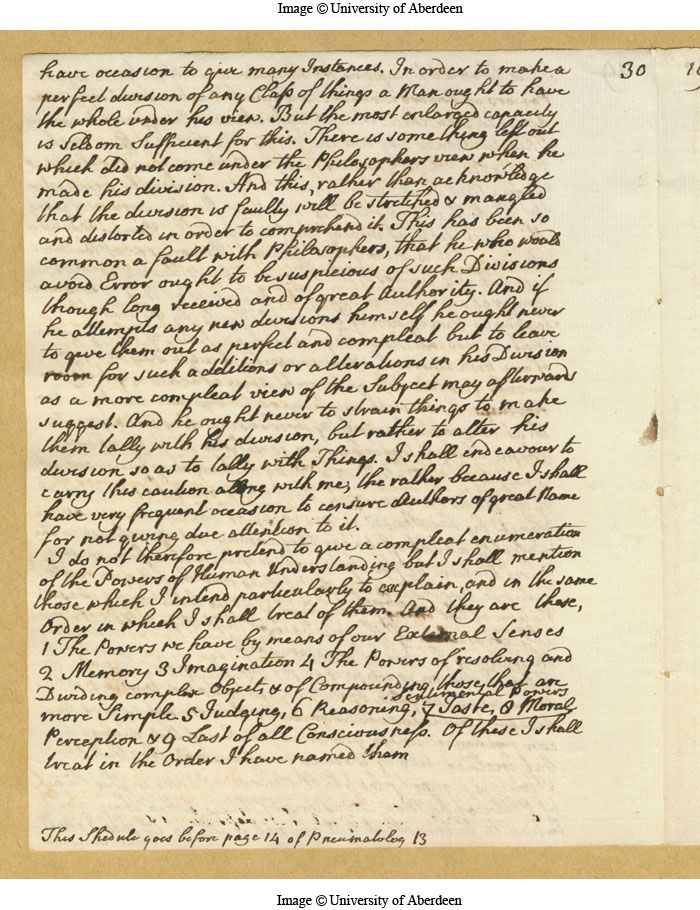 Image © University of Aberdeen
have occasion to give many Instances. In order to make a
perfect division of any Class of things a Man ought to have
the whole under his view. But the most enlarged capacity
is seldom Sufficient for this. There is something left out
which did not come under the Philosophers view when he
made his division. And this, rather than acknowledge
that the division is faulty will be stretched & mangled
and distorted in order to comprehend it. This has been so
common a fault with Philosophers, that he who would
avoid Error ought to be suspicious of such Divisions
though long received and of great Authority. And if
he attempts any new divisions himself he ought never
to give them out as perfect and compleat but to leave
room for such additions or alterations in his Division
as a more compleat view of the Subject may afterwards
suggest. And he ought never to strain things to make
them tally with his division, but rather to alter his
division so as to tally with Things. I shall endeavour to
carry this caution along with me, the rather because I shall
have very frequent occasion to censure Authors of great Name
for not giving due attention to it.
I do not therefore pretend to give a compleat enumeration
of the Powers of Human Understanding but I shall mention
those which I intend particularly to explain, and in the same
Order in which I shall treat of them. And they are these,
1 The Powers we have by means of our External Senses
2 Memory 3 Imagination 4 The Powers of resolving and
Dividing complex Objects & of Compounding those that are
more Simple 5 Judging, 6 Reasoning, 7 Taste, 8 Moral
Sentimental Powers
Perception & 9 Last of all Consciousness. Of these I shall
treat in the Order I have named them
This Shedule goes before page 14 of Pneumatolog 13
30
Image © University of Aberdeen